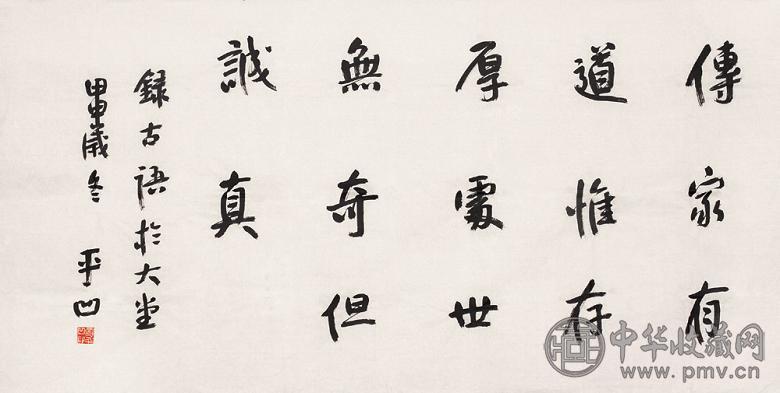 傳家有
道惟存
厚處世
無奇但
誠真
録古語於大堂
甲申歲冬 平凹
中华收藏网
www.pmv.cn